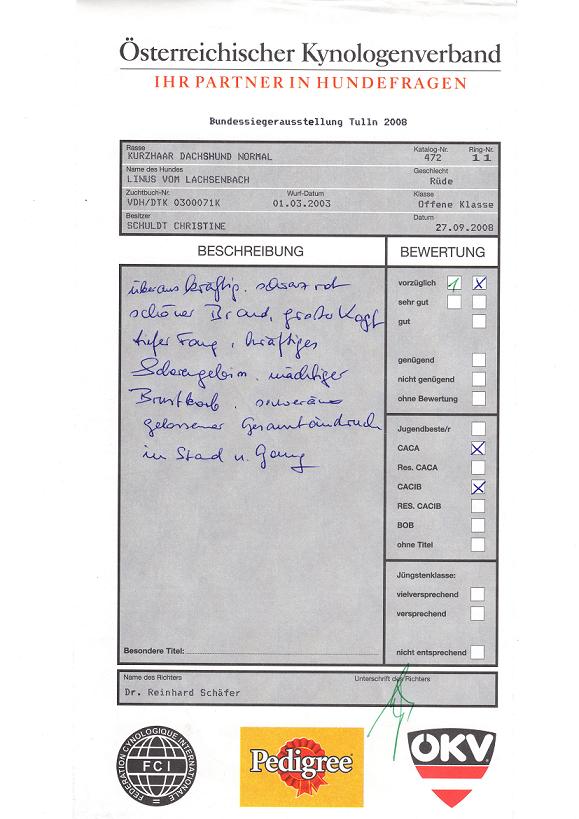 Österreichischer Kynologenverband
IHR PARTNER IN HUNDEFRAGEN
Bundessiegerausstellung Tulln 2008
Rasse Katalog-Nr. Ring-Nr.
KURZHAAR DACHSHUND NORMAL 472 11
Name des Hundes Geschlecht
LINUS VOM LACHSENBACH Rüde
Zuchtbuch-Nr. Wurf-Datum Klasse
VDH/DTK 0300071K 01.03.2003 Offene Klasse
Besitzer Datum
SCHULDT CHRISTINE 27.09.2008
BESCHREIBUNG
überaus kräftig. schwarzrot
schöner Brand, großer Kopf
tiefer Fang, kräftiges
Scherengebiss. mächtiger
Brustkorb. souverän
gelassener Gesamteindruck
in Stand u. Gang
Besondere Titel:
BEWERTUNG
vorzüglich 1 X
sehr gut
gut
genügend
nicht genügend
ohne Bewertung
Jugendbeste/r
CACA X
Res. CACA
CACIB X
RES. CACIB
BOB
ohne Titel
Jüngstenklasse:
vielversprechend
versprechend
nicht entsprechend
Name des Richters Unterschrift des Richters
Dr. Reinhard Schäfer
FEDERATION CYNOLOGIQUE INTERNATIONALE
FCI
Pedigree
ÖKV